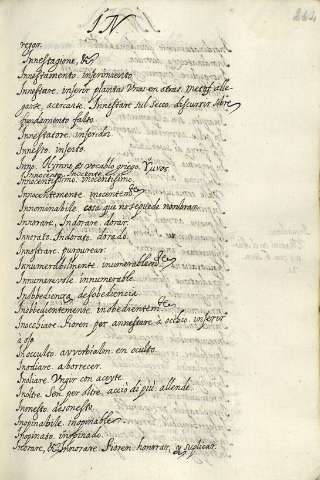 IN
regar.
Innestagione, &
Innestamento. inserimiento
Innestare. inserir plantas Unas en otras. metaf. alle
garse, acercarse. Innestare sul Secco. discurrir sobre
fundamento falso.
Innestatore. inseridor
Innesto. inserto.
Inno. Hymno es vocablo griego.
Innocente. Inocente
Innocentissimo. inocentissimo.
Innocentemente. inocentemte
Innominabile. cosa que no se pueda nombrar.
Innorare, Indorare. dorar.
Innorato. Indorato. dorado.
Innostrare. purpurear.
Innumerabilmente. inumerablemte
Innumerevole innumerable.
Inobbedienza desobediencia
Inobbedientemente. inobedientemte
Inocchiare. Fioren. per annestare à occhio. inserir
a ojo
Inocculto. avverbialm. en oculto.
Inodiare. aborrecer.
Inoliare. Ungir con aceyte.
Inoltre. Sen. per oltre, acciò di più. allende.
Inonesto. desonesto.
Inopinabile. inopinable
Inopinato. inopinado.
Inorare, & Innorare. Fioren. honorar, y suplicar.